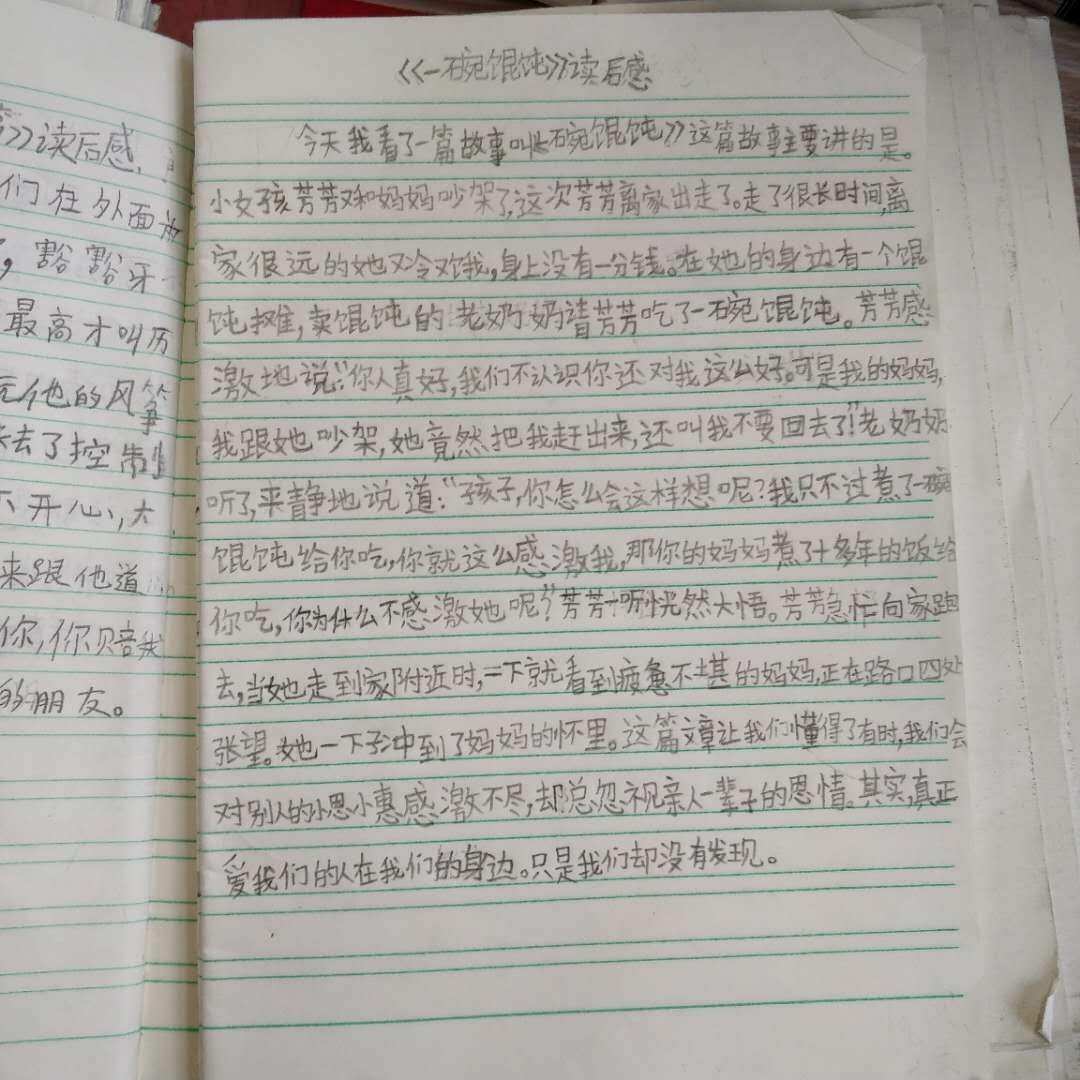 》读后感，
们在外面
，豁豁牙
最高才叫厉
他的风筝
去了控制
不开心，大
来跟他道
你，你赔我
的朋友。
《一碗馄饨》读后感
今天我看了一篇故事叫《一碗馄饨》这篇故事主要讲的是。
小女孩芳芳又和妈妈吵架了，这次芳芳离家出走了。走了很长时间，离
家很远的她又冷又饿，身上没有一分钱。在她的身边有一个馄
饨摊，卖馄饨的老奶奶请芳芳吃了一碗馄饨。芳芳感
激地说：“你人真好，我们不认识你还对我这么好。可是我的妈妈，
我跟她吵架，她竟然把我赶出来，还叫我不要回去了！”老奶奶
听了，平静地说道：“孩子，你怎么会这样想呢？我只不过煮了一碗
馄饨给你吃，你就这么感激我，那你的妈妈煮了十多年的饭给
你吃，你为什么不感激她呢？”芳芳一听恍然大悟。芳芳急忙向家跑
去，当她走到家附近时，一下就看到疲惫不堪的妈妈，正在路口四处
张望。她一下子冲到了妈妈的怀里。这篇文章让我们懂得了有时，我们会
对别人的小恩小惠感激不尽，却总忽视亲人一辈子的恩情。其实，真正
爱我们的人在我们的身边。只是我们却没有发现。